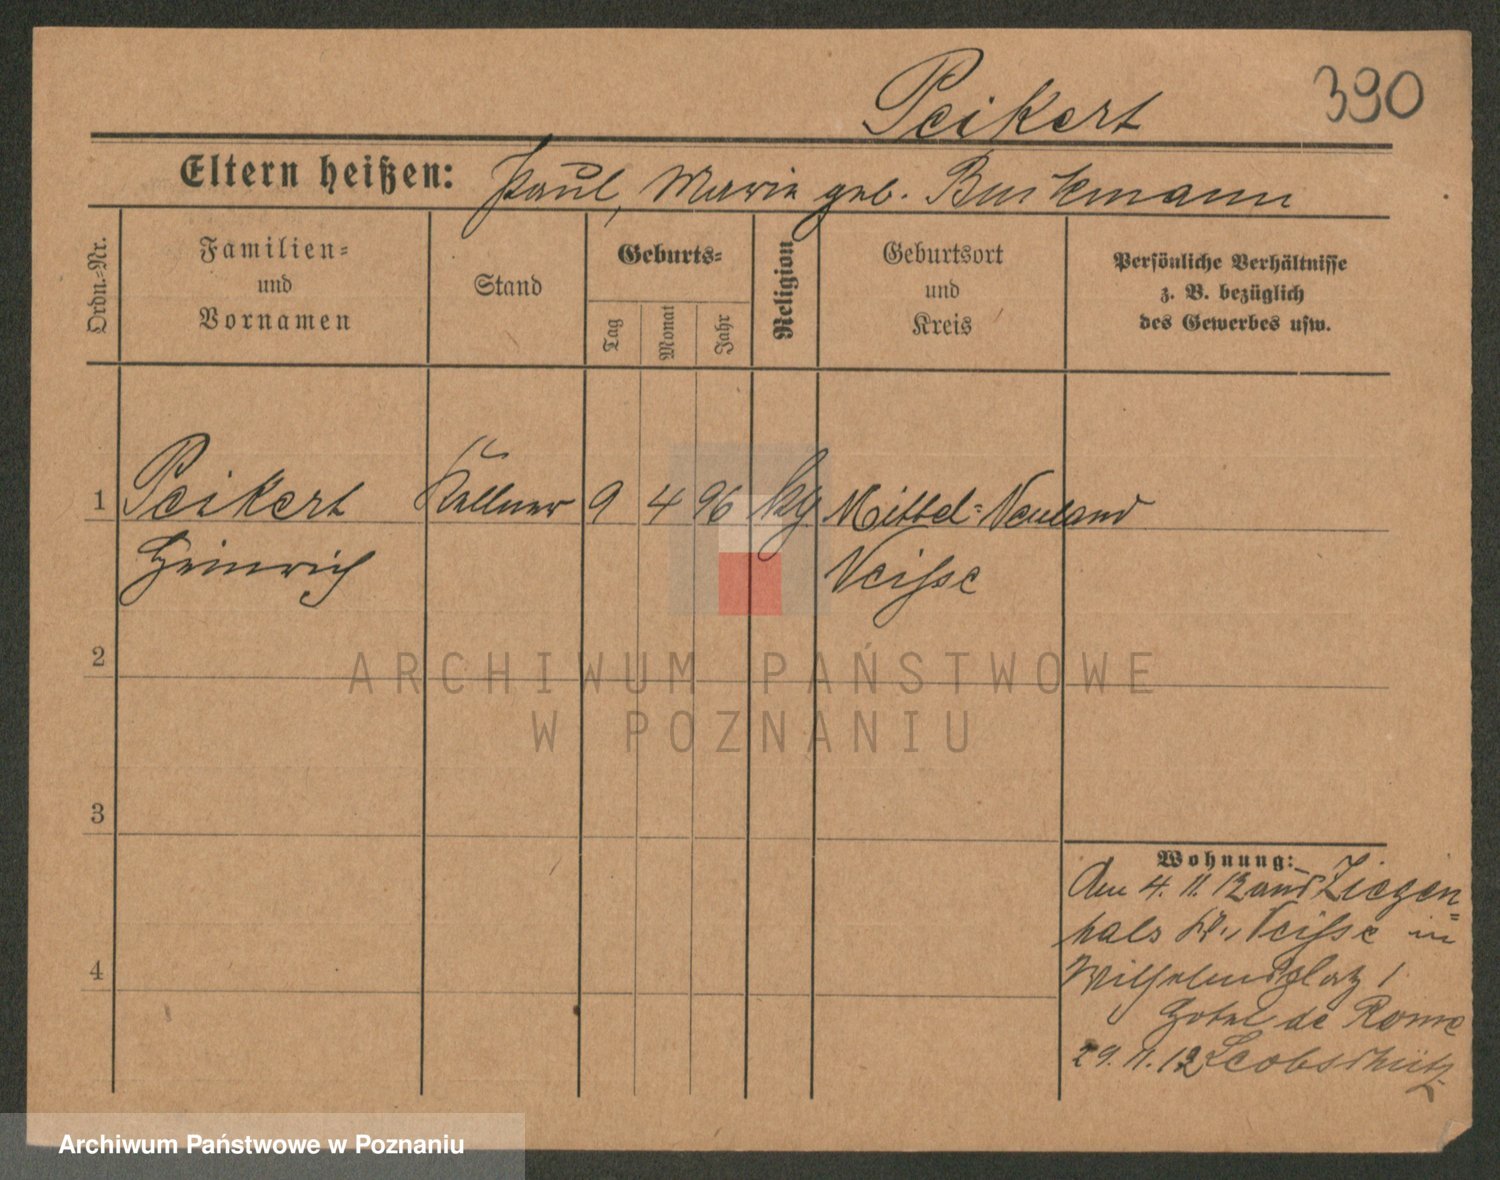 390
Peikert
Eltern heißen: Paul, Marie geb. Burkmann
Ordn.-Nr.
Familien- und Vornamen
Stand
Geburts-
Tag
Monat
Jahr
Religion
Geburtsort und Kreis
Persönliche Verhältnisse
z. B. bezüglich
des Gewerbes usw.
1 Peikert Kellner 9 4 96 kg Mittel-Neuland
Heinrich Neisse
2
3
4
Wohnung:
Am 4. 11. 12 aus Ziegen=
hals Kr. Neisse in
Wilhelmsplatz 1
Hotel de Rome
29. 11. 12 Leobschütz
ARCHIWUM PAŃSTWOWE
W POZNANIU
Archiwum Państwowe w Poznaniu